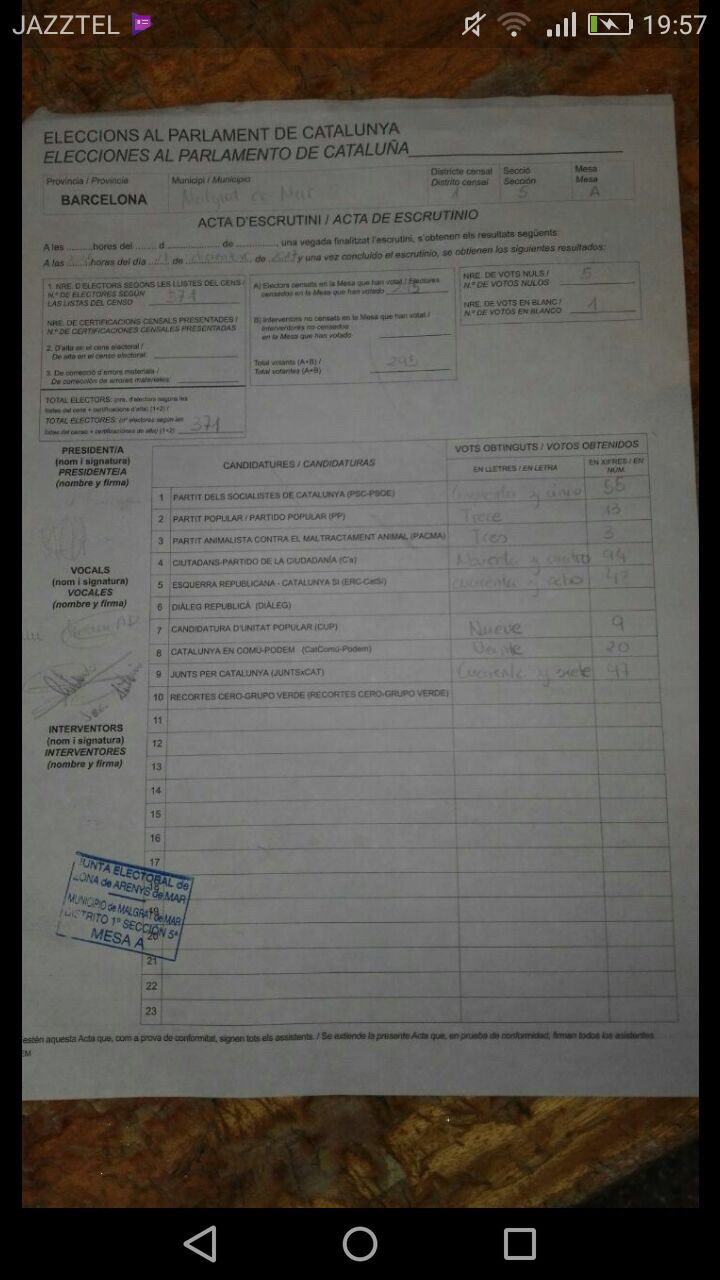 JAZZTEL 19:57
ELECCIONS AL PARLAMENT DE CATALUNYA
ELECCIONES AL PARLAMENTO DE CATALUÑA
Província / Provincia Municipi / Municipio Districte censal Secció Mesa
Distrito censal Sección Mesa
BARCELONA Malgrat de Mar 1 5 A
ACTA D'ESCRUTINI / ACTA DE ESCRUTINIO
A les ........hores del ....... d .................. de .............., una vegada finalitzat l'escrutini, s'obtenen els resultats següents:
A las ........horas del día 21 de diciembre de 2017 y una vez concluido el escrutinio, se obtienen los siguientes resultados:
1. NRE. D'ELECTORS SEGONS LES LLISTES DEL CENS /
N.º DE ELECTORES SEGÚN
LAS LISTAS DEL CENSO 371
NRE. DE CERTIFICACIONS CENSALS PRESENTADES /
N.º DE CERTIFICACIONES CENSALES PRESENTADAS
2. D'alta en el cens electoral /
De alta en el censo electoral:
3. De correcció d'errors materials /
De corrección de errores materiales:
TOTAL ELECTORS: (nre. d'electors segons les
llistes del cens + certificacions d'alta) (1+2) /
TOTAL ELECTORES: (nº electores según las
listas del censo + certificaciones de alta) (1+2) 371
A) Electors censats en la Mesa que han votat / Electores
censados en la Mesa que han votado
B) Interventors no censats en la Mesa que han votat /
Interventores no censados
en la Mesa que han votado
Total votants (A+B) /
Total votantes (A+B) 295
NRE. DE VOTS NULS /
N.º DE VOTOS NULOS 5
NRE. DE VOTS EN BLANC /
N.º DE VOTOS EN BLANCO 1
PRESIDENT/A
(nom i signatura)
PRESIDENTE/A
(nombre y firma)
VOCALS
(nom i signatura)
VOCALES
(nombre y firma)
INTERVENTORS
(nom i signatura)
INTERVENTORES
(nombre y firma)
CANDIDATURES / CANDIDATURAS
VOTS OBTINGUTS / VOTOS OBTENIDOS
EN LLETRES / EN LETRA EN XIFRES / EN NÚM.
1 PARTIT DELS SOCIALISTES DE CATALUNYA (PSC-PSOE) cincuenta y cinco 55
2 PARTIT POPULAR / PARTIDO POPULAR (PP) Trece 13
3 PARTIT ANIMALISTA CONTRA EL MALTRACTAMENT ANIMAL (PACMA) Tres 3
4 CIUTADANS-PARTIDO DE LA CIUDADANÍA (C's) Noventa y cuatro 94
5 ESQUERRA REPUBLICANA - CATALUNYA SÍ (ERC-CatSí) cuarenta y ocho
6 DIÀLEG REPUBLICÀ (DIÀLEG)
7 CANDIDATURA D'UNITAT POPULAR (CUP) Nueve 9
8 CATALUNYA EN COMÚ-PODEM (CatComú-Podem) Veinte 20
9 JUNTS PER CATALUNYA (JUNTSxCAT) Cuarenta y siete 47
10 RECORTES CERO-GRUPO VERDE (RECORTES CERO-GRUPO VERDE)
11
12
13
14
15
16
17
18
19
20
21
22
23
JUNTA ELECTORAL de
ZONA de ARENYS de MAR
MUNICIPIO de MALGRAT de MAR
DISTRITO 1º SECCIÓN 5ª
MESA A
estén aquesta Acta que, com a prova de conformitat, signen tots els assistents. / Se extiende la presente Acta que, en prueba de conformidad, firman todos los asistentes.
EM